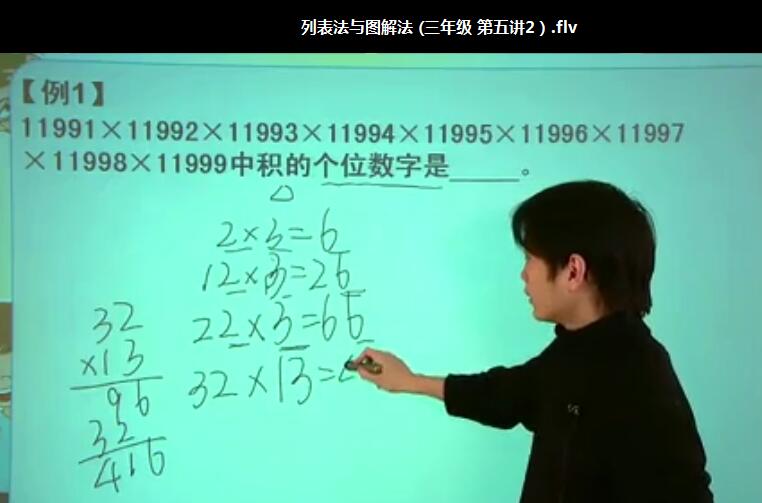 列表法与图解法 (三年级 第五讲2 ) .flv
【例1】
11991×11992×11993×11994×11995×11996×11997
×11998×11999中积的个位数字是_____。
2×3=6
12×3=26
22×3=66
32×13=4
32
×13
96
32
416